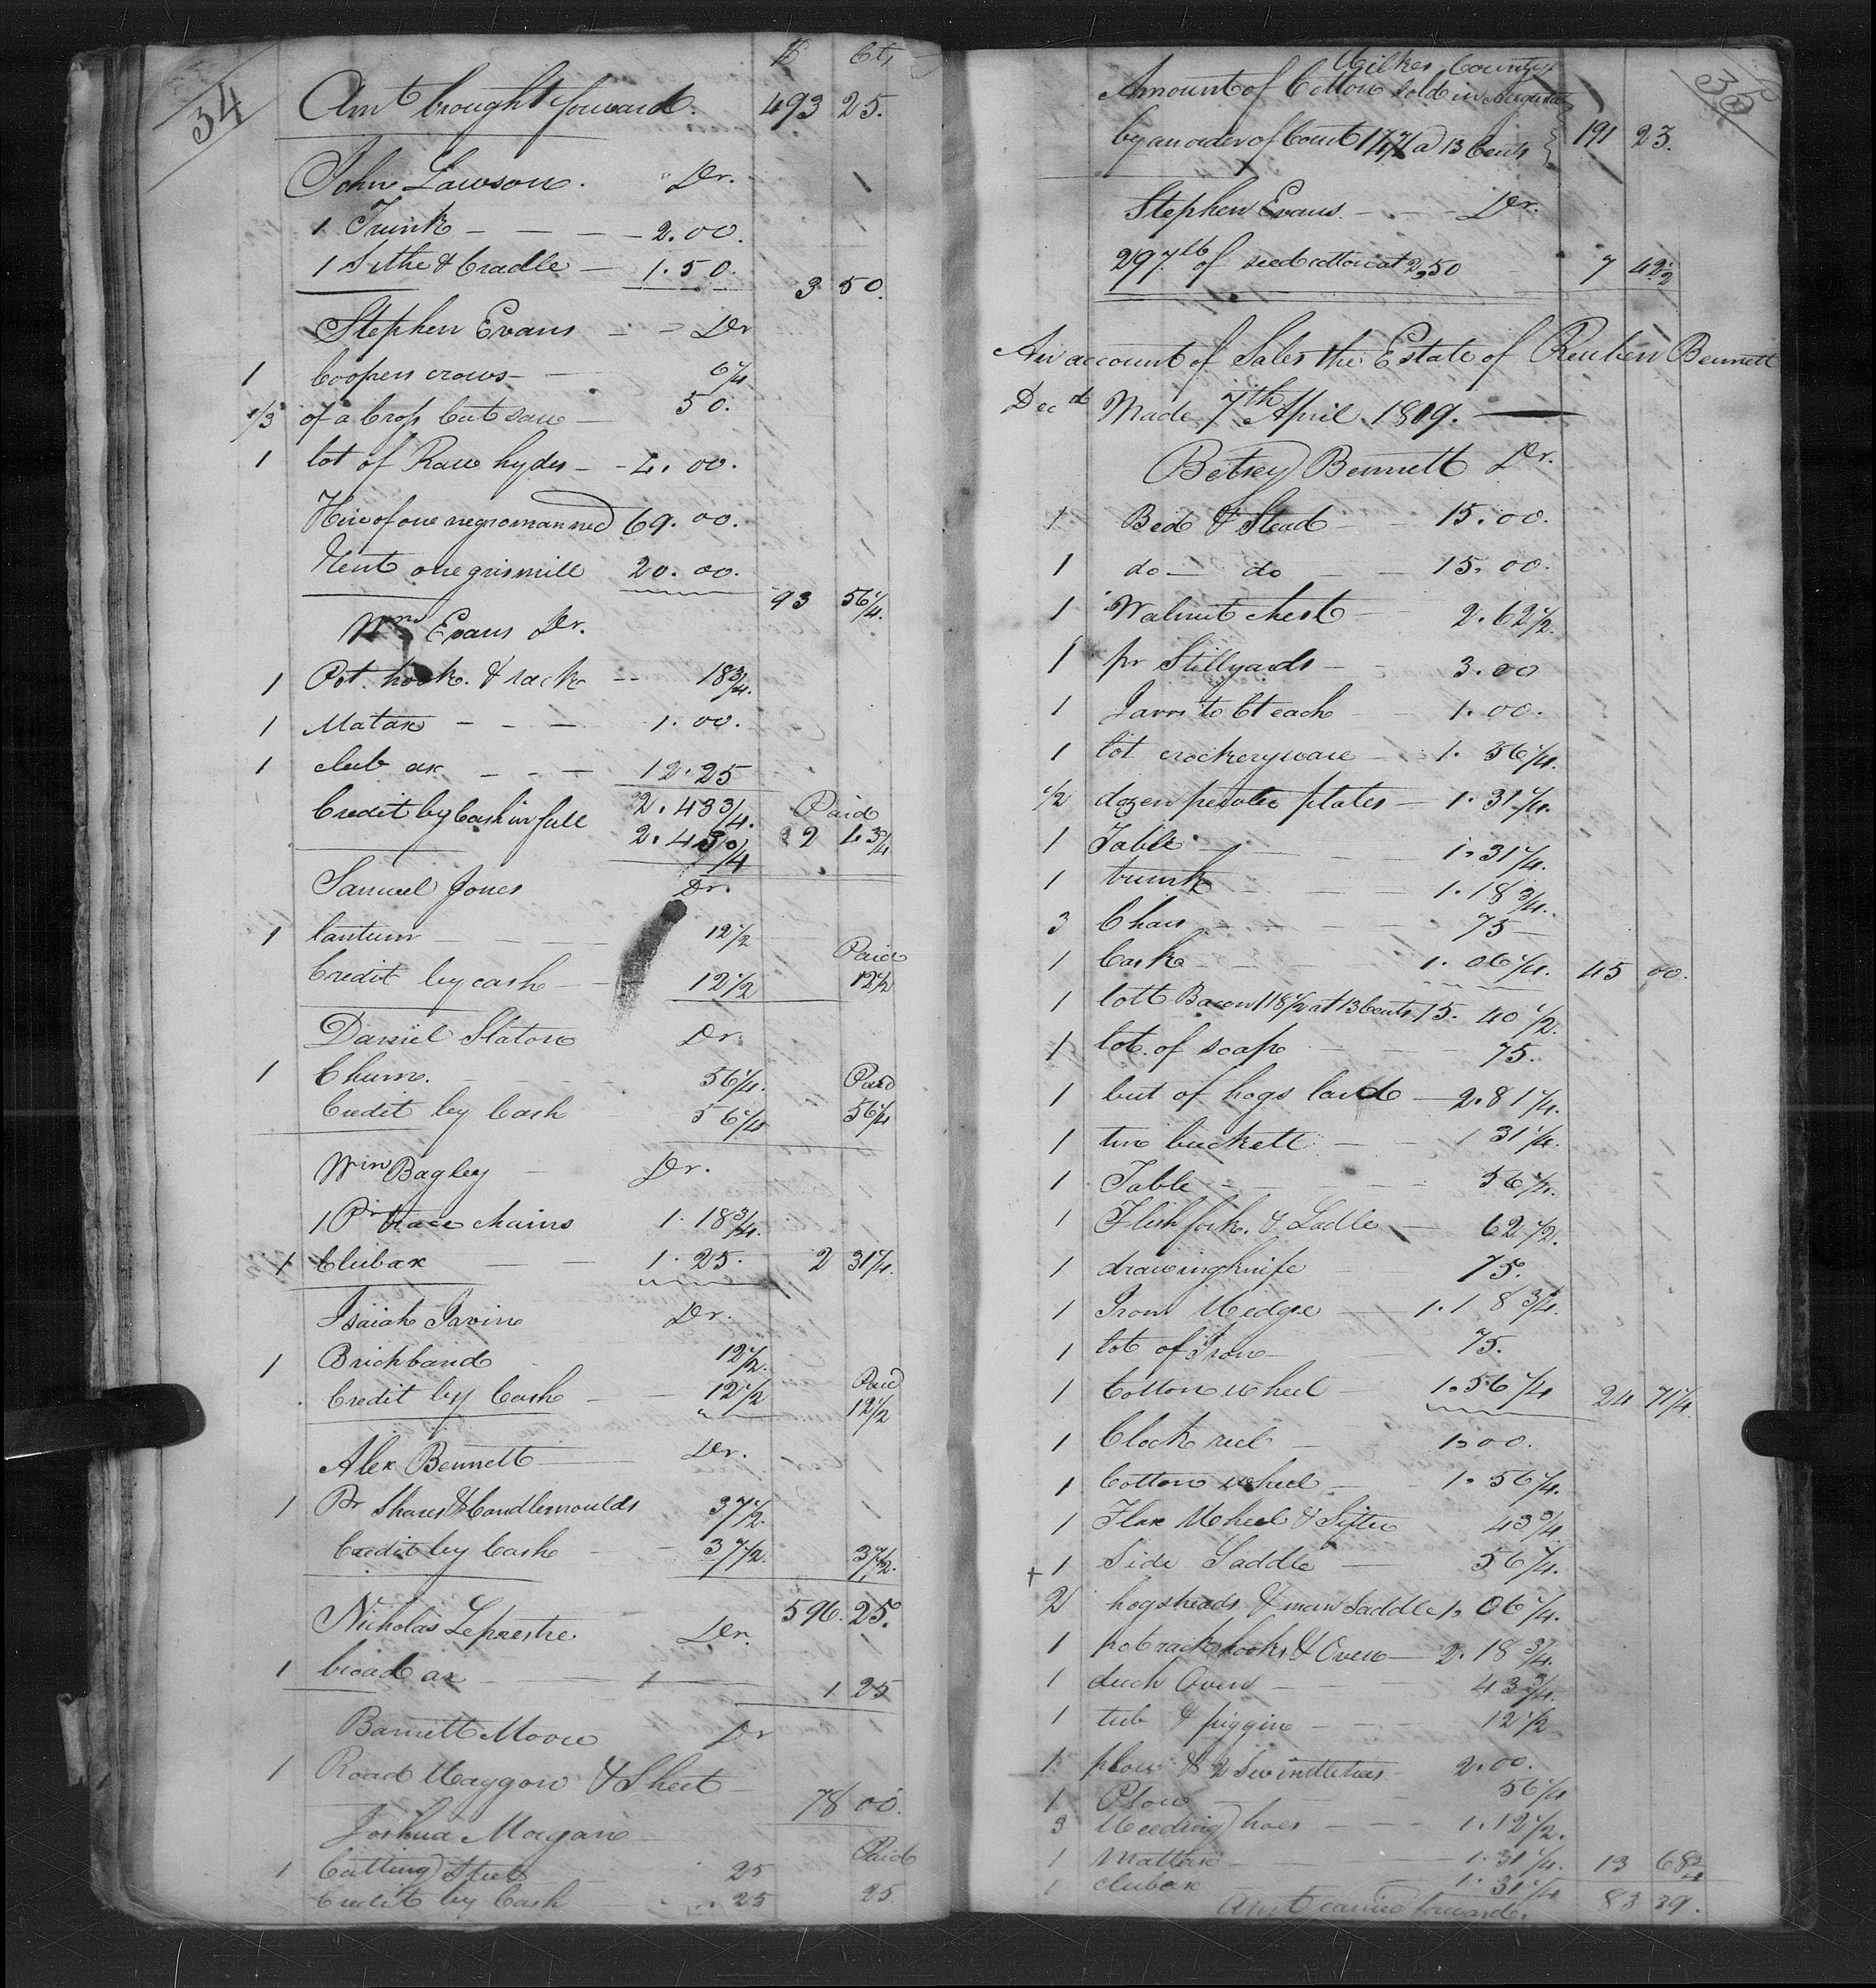 34
$ Cts
Amt brought forward. 493 25.
John Lawson. Dr.
1 Trunk 2.00.
1 Sithe & Cradle 1.50. 3 50.
Stephen Evans Dr
1 Coopers crows 6¼
1/3 of a Crop Cut saw 50.
1 lot of Raw hydes 4.00.
Hire of one negro man ned 69.00.
Rent one grismill 20.00. 93 56¼.
Wm Evans Dr.
1 Pot hook & rack 18¾.
1 Matax 1.00.
1 club ax 1 2.25
2.43¾. Paid
Credit by Cash in full 2.43¾ 2 43¾
Samuel Jones Dr.
1 lanturn 12½ Paid
Credit by cash 12½ 12½
Daniel Slaton Dr.
1 Churn. 56¼. Paid
Credit by Cash 56¼ 56¼
Wm Bagley Dr.
1 Pr trace chains 1.18¾.
1 Clubax 1.25. 2 31¼.
Isaiah Irvine Dr.
1 Brichband 12½.
Credit by Cash 12½ Paid 12½
Alex Bennett Dr.
1 Pr Shares & Candlemoulds 37½.
Credit by Cash 37½. 37½.
596.25.
Nicholas Lepraestre Dr.
1 broad ax 1 25
Barnett Moore Dr
1 Road Waggon & Sheet 78 00.
Joshua Morgan Paid
1 Cutting Steel 25
Credit by Cash 25 25.
35
Wilkes County
Amount of Cotton sold in Augusta
by an order of Court 1471 @ 13 Cents 191 23.
Stephen Evans Dr.
297 lb of seed cotton at 2,50 7 42½
An account of Sales the Estate of Reuben Bennett
Decd Made 7th April 1809.
Betsey Bennett Dr.
1 Bed & Stead 15.00.
1 do do 15.00.
1 Walnut chest 2.62½.
1 pr Stillyards 3.00
1 Jarrs to 6t each 1.00.
1 lot crockeryware 1.56¼.
½ dozen pewter plates 1.31¼.
1 Table 1.31¼.
1 trunk 1.18¾.
3 Chairs 75
1 Cask 1.06¼. 45 00.
1 lott Bacon 118½ at 13 Cents 15.40½.
1 lot of soap 75.
1 but of hogs lard 2.81¼.
1 tin buckett 1 31¼.
1 Table 56¼.
1 Flish fork & Ladle 62½.
1 drawing knife 75.
1 Iron Wedge 1.18¾.
1 lot of Iron 75.
1 Cotton wheel 1.56¼ 24 71¼.
1 Clock reel 1.00.
1 Cotton wheel 1.56¼.
1 Flax Wheel & Sifter 43¾
+ 1 Side Saddle 56¼.
2 hogsheads & man Saddle 1.06¼.
1 pot rack hooks & Oven 2.18¾.
1 duch Oven 43¾.
1 tub & piggin 12½
1 plow & 2 Swindletrees 2.00.
1 Plow 56¼
3 Weeding hoes 1.12½.
1 Mattax 1.31¼. 13 68¾
1 clubax 1.31¼
Amt carried forward. 83 39.